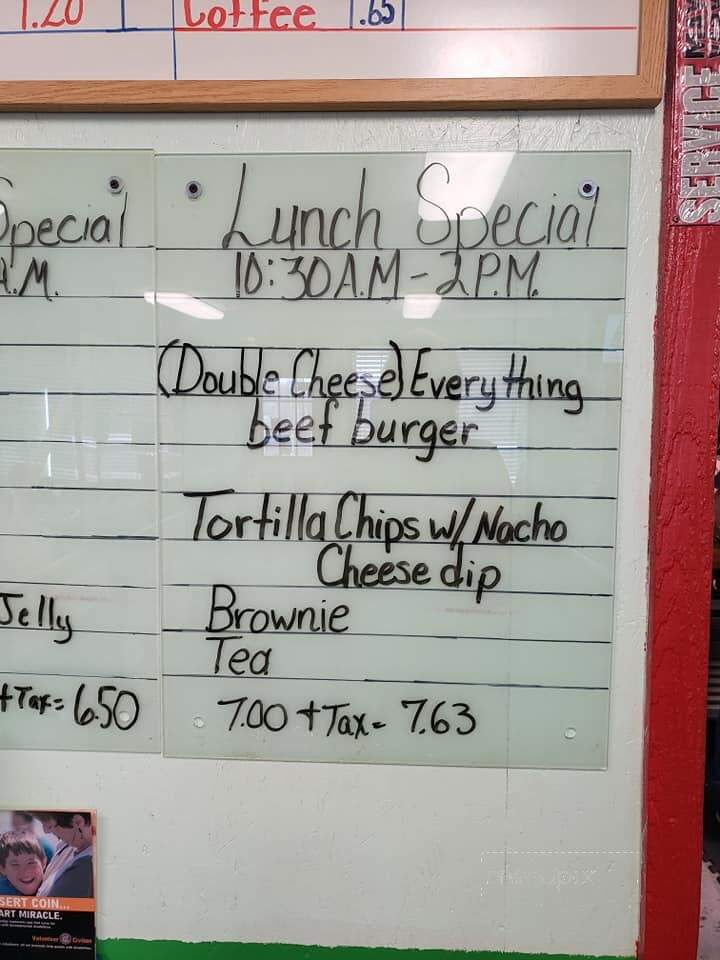 1.20 Coffee .65
SERVICE
Special
A.M.
Jelly
+Tax= 6.50
Lunch Special
10:30A.M-2P.M.
(Double Cheese) Everything
beef burger
Tortilla Chips w/Nacho
Cheese dip
Brownie
Tea
7.00 +Tax= 7.63
SERT COIN...
ART MIRACLE.
Volunteer Civitan